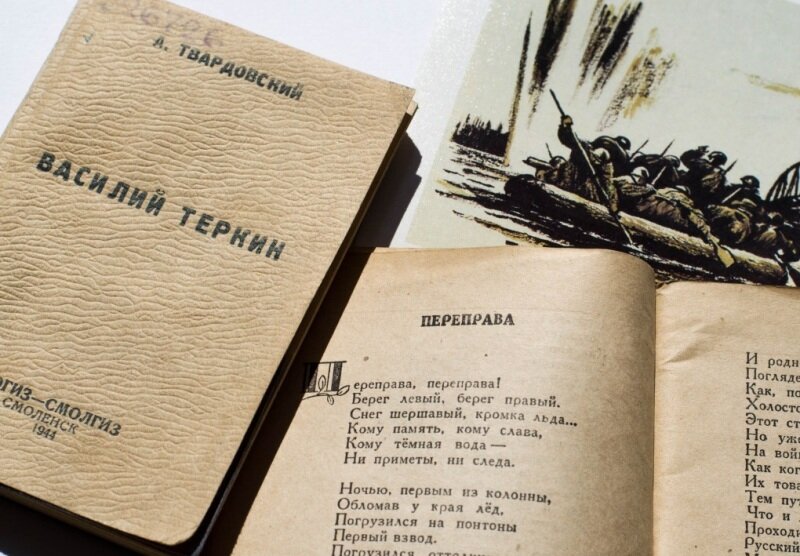 А. ТВАРДОВСКИЙ
ВАСИЛИЙ ТЕРКИН
СМОЛГИЗ
СМОЛЕНСК
1944
ПЕРЕПРАВА
Переправа, переправа!
Берег левый, берег правый.
Снег шершавый, кромка льда...
Кому память, кому слава,
Кому тёмная вода —
Ни приметы, ни следа.
Ночью, первым из колонны,
Обломав у края лёд,
Погрузился на понтоны
Первый взвод.
Погрузился
И
Как,
Этот
Но
На
Как
Их
Тем
Что и